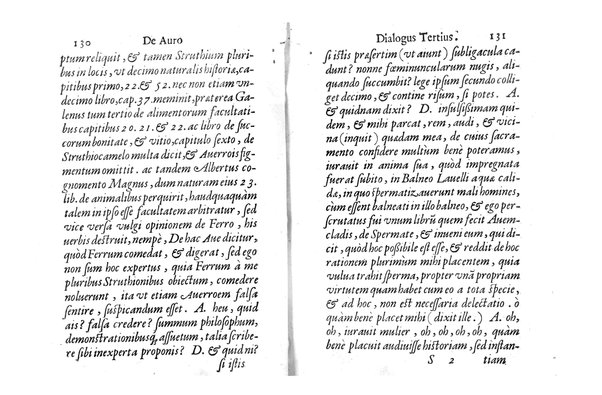 130 De Auro
ptum reliquit, & tamen Struthium pluri-
bus in locis, vt decimo naturalis historiæ, ca-
pitibus primo, 22. & 52. nec non etiam vn-
decimo libro, cap. 37. meminit, præterea Ga-
lenus tum tertio de alimentorum facultati-
bus capitibus 20. 21. & 22. ac libro de suc-
corum bonitate, & vitio, capitulo sexto, de
Struthiocamelo multa dicit, & Auerrois fig-
mentum omittit. ac tandem Albertus co-
gnomento Magnus, dum naturam eius 23
lib. de animalibus perquirit, haudquaquàm
talem in ipso esse facultatem arbitratur, sed
vice versa vulgi opinionem de Ferro, his
uerbis destruit, nempè, De hac Aue dicitur,
quòd Ferrum comedat, & digerat, sed ego
non sum hoc expertus, quia Ferrum à me
pluribus Struthionibus obiectum, comedere
noluerunt, ita vt etiam Auerroem falsa
sentire, suspicandum esset. A. heu, quid
ais? falsa credere? summum philosophum,
demonstrationibusq́, assuetum, talia scribe-
re sibi inexperta proponis? D. & quid ni?
si istis
Dialogus Tertius. 131
si istis præsertim (vt aiunt) subligacula ca-
dunt? nonne fœminuncularum nugis, ali-
quando succumbit? lege ipsum secundo colli-
get decimo, & contine risum, si potes. A.
& quidnam dixit? D. insulsissimam qui-
dem, & mihi parcat, rem, audi, & vici-
na (inquit) quædam mea, de cuius sacra-
mento confidere multùm benè potessemus,
iurauit in anima sua, quòd impregnata
fuerat subito, in Balneo Lauelli aquæ cali-
dæ, in quo spermatizauerunt mali homines,
cùm essent balneati in illo balneo, & ego per-
scrutatus fui vnum librũ quem fecit Auem-
cladis, de Spermate, & inueni eum, qui di-
cit, quòd hoc possibile est esse, & reddit de hoc
rationem plurimùm mihi placentem, quia
vulua trahit sperma, propter vnã propriam
virtutem quam habet cum eo a tota specie,
& ad hoc, non est necessaria delectatio. ò
quàm benè placet mihi (dixit ille.) A. oh,
oh, iurauit mulier, oh, oh, oh, oh, quàm
benè placuit audiuisse historiam, sed instan-
S 2 tiam